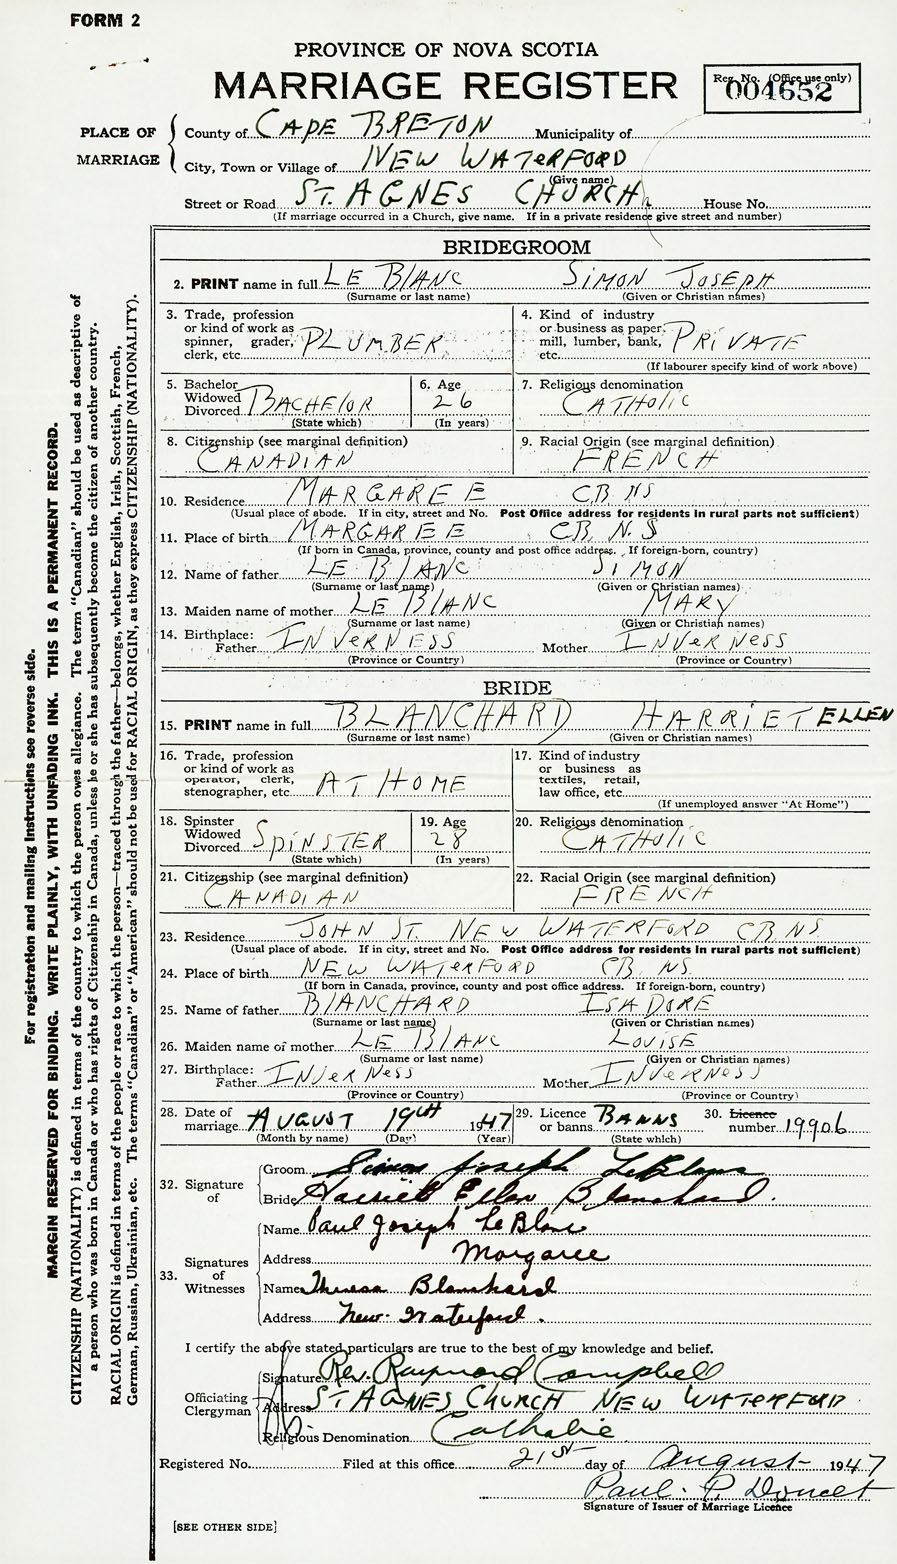 FORM 2
PROVINCE OF NOVA SCOTIA
MARRIAGE REGISTER
Reg. No. (Office use only)
004652
PLACE OF MARRIAGE
County of CAPE BRETON Municipality of
City, Town or Village of NEW WATERFORD
(Give name)
Street or Road ST. AGNES CHURCH House No.
(If marriage occurred in a Church, give name. If in a private residence give street and number)
BRIDEGROOM
2. PRINT name in full LE BLANC SIMON JOSEPH
(Surname or last name) (Given or Christian names)
3. Trade, profession or kind of work as spinner, grader, clerk, etc. PLUMBER
4. Kind of industry or business as paper mill, lumber, bank, etc. PRIVATE
(If labourer specify kind of work above)
5. Bachelor Widowed Divorced BACHELOR
(State which)
6. Age 26
(In years)
7. Religious denomination CATHOLIC
8. Citizenship (see marginal definition) CANADIAN
9. Racial Origin (see marginal definition) FRENCH
10. Residence MARGAREE CB NS
(Usual place of abode. If in city, street and No. Post Office address for residents in rural parts not sufficient)
11. Place of birth MARGAREE CB. N.S
(If born in Canada, province, county and post office address. If foreign-born, country)
12. Name of father LE BLANC SIMON
(Surname or last name) (Given or Christian names)
13. Maiden name of mother LE BLANC MARY
(Surname or last name) (Given or Christian names)
14. Birthplace: Father INVERNESS Mother INVERNESS
(Province or Country) (Province or Country)
BRIDE
15. PRINT name in full BLANCHARD HARRIET ELLEN
(Surname or last name) (Given or Christian names)
16. Trade, profession or kind of work as operator, clerk, stenographer, etc. AT HOME
17. Kind of industry or business as textiles, retail, law office, etc.
(If unemployed answer "At Home")
18. Spinster Widowed Divorced SPINSTER
(State which)
19. Age 28
(In years)
20. Religious denomination CATHOLIC
21. Citizenship (see marginal definition) CANADIAN
22. Racial Origin (see marginal definition) FRENCH
23. Residence JOHN ST. NEW WATERFORD CB NS
(Usual place of abode. If in city, street and No. Post Office address for residents in rural parts not sufficient)
24. Place of birth NEW WATERFORD CB. NS.
(If born in Canada, province, county and post office address. If foreign-born, country)
25. Name of father BLANCHARD ISADORE
(Surname or last name) (Given or Christian names)
26. Maiden name of mother LE BLANC LOUISE
(Surname or last name) (Given or Christian names)
27. Birthplace: Father INVERNESS Mother INVERNESS
(Province or Country) (Province or Country)
28. Date of marriage AUGUST 19th 1947
(Month by name) (Day) (Year)
29. Licence or banns BANNS
(State which)
30. Licence number 19906
32. Signature of
Groom Simon Joseph LeBlanc
Bride Harriet Ellen Blanchard.
33. Signatures of Witnesses
Name Paul Joseph LeBlanc
Address Margaree
Name Theresa Blanchard
Address New Waterford.
I certify the above stated particulars are true to the best of my knowledge and belief.
Officiating Clergyman
Signature Rev. Raymond Campbell
Address ST AGNES CHURCH NEW WATERFORD
Religious Denomination Catholic
Registered No. Filed at this office 21st day of August 1947
Paul. P. Doucet
Signature of Issuer of Marriage Licence
[SEE OTHER SIDE]
For registration and mailing instructions see reverse side.
MARGIN RESERVED FOR BINDING. WRITE PLAINLY, WITH UNFADING INK. THIS IS A PERMANENT RECORD.
CITIZENSHIP (NATIONALITY) is defined in terms of the country to which the person owes allegiance. The term "Canadian" should be used as descriptive of
a person who was born in Canada or who has rights of Citizenship in Canada, unless he or she has subsequently become the citizen of another country.
RACIAL ORIGIN is defined in terms of the people or race to which the person—traced through the father—belongs, whether English, Irish, Scottish, French,
German, Russian, Ukrainian, etc. The terms "Canadian" or "American" should not be used for RACIAL ORIGIN, as they express CITIZENSHIP (NATIONALITY).